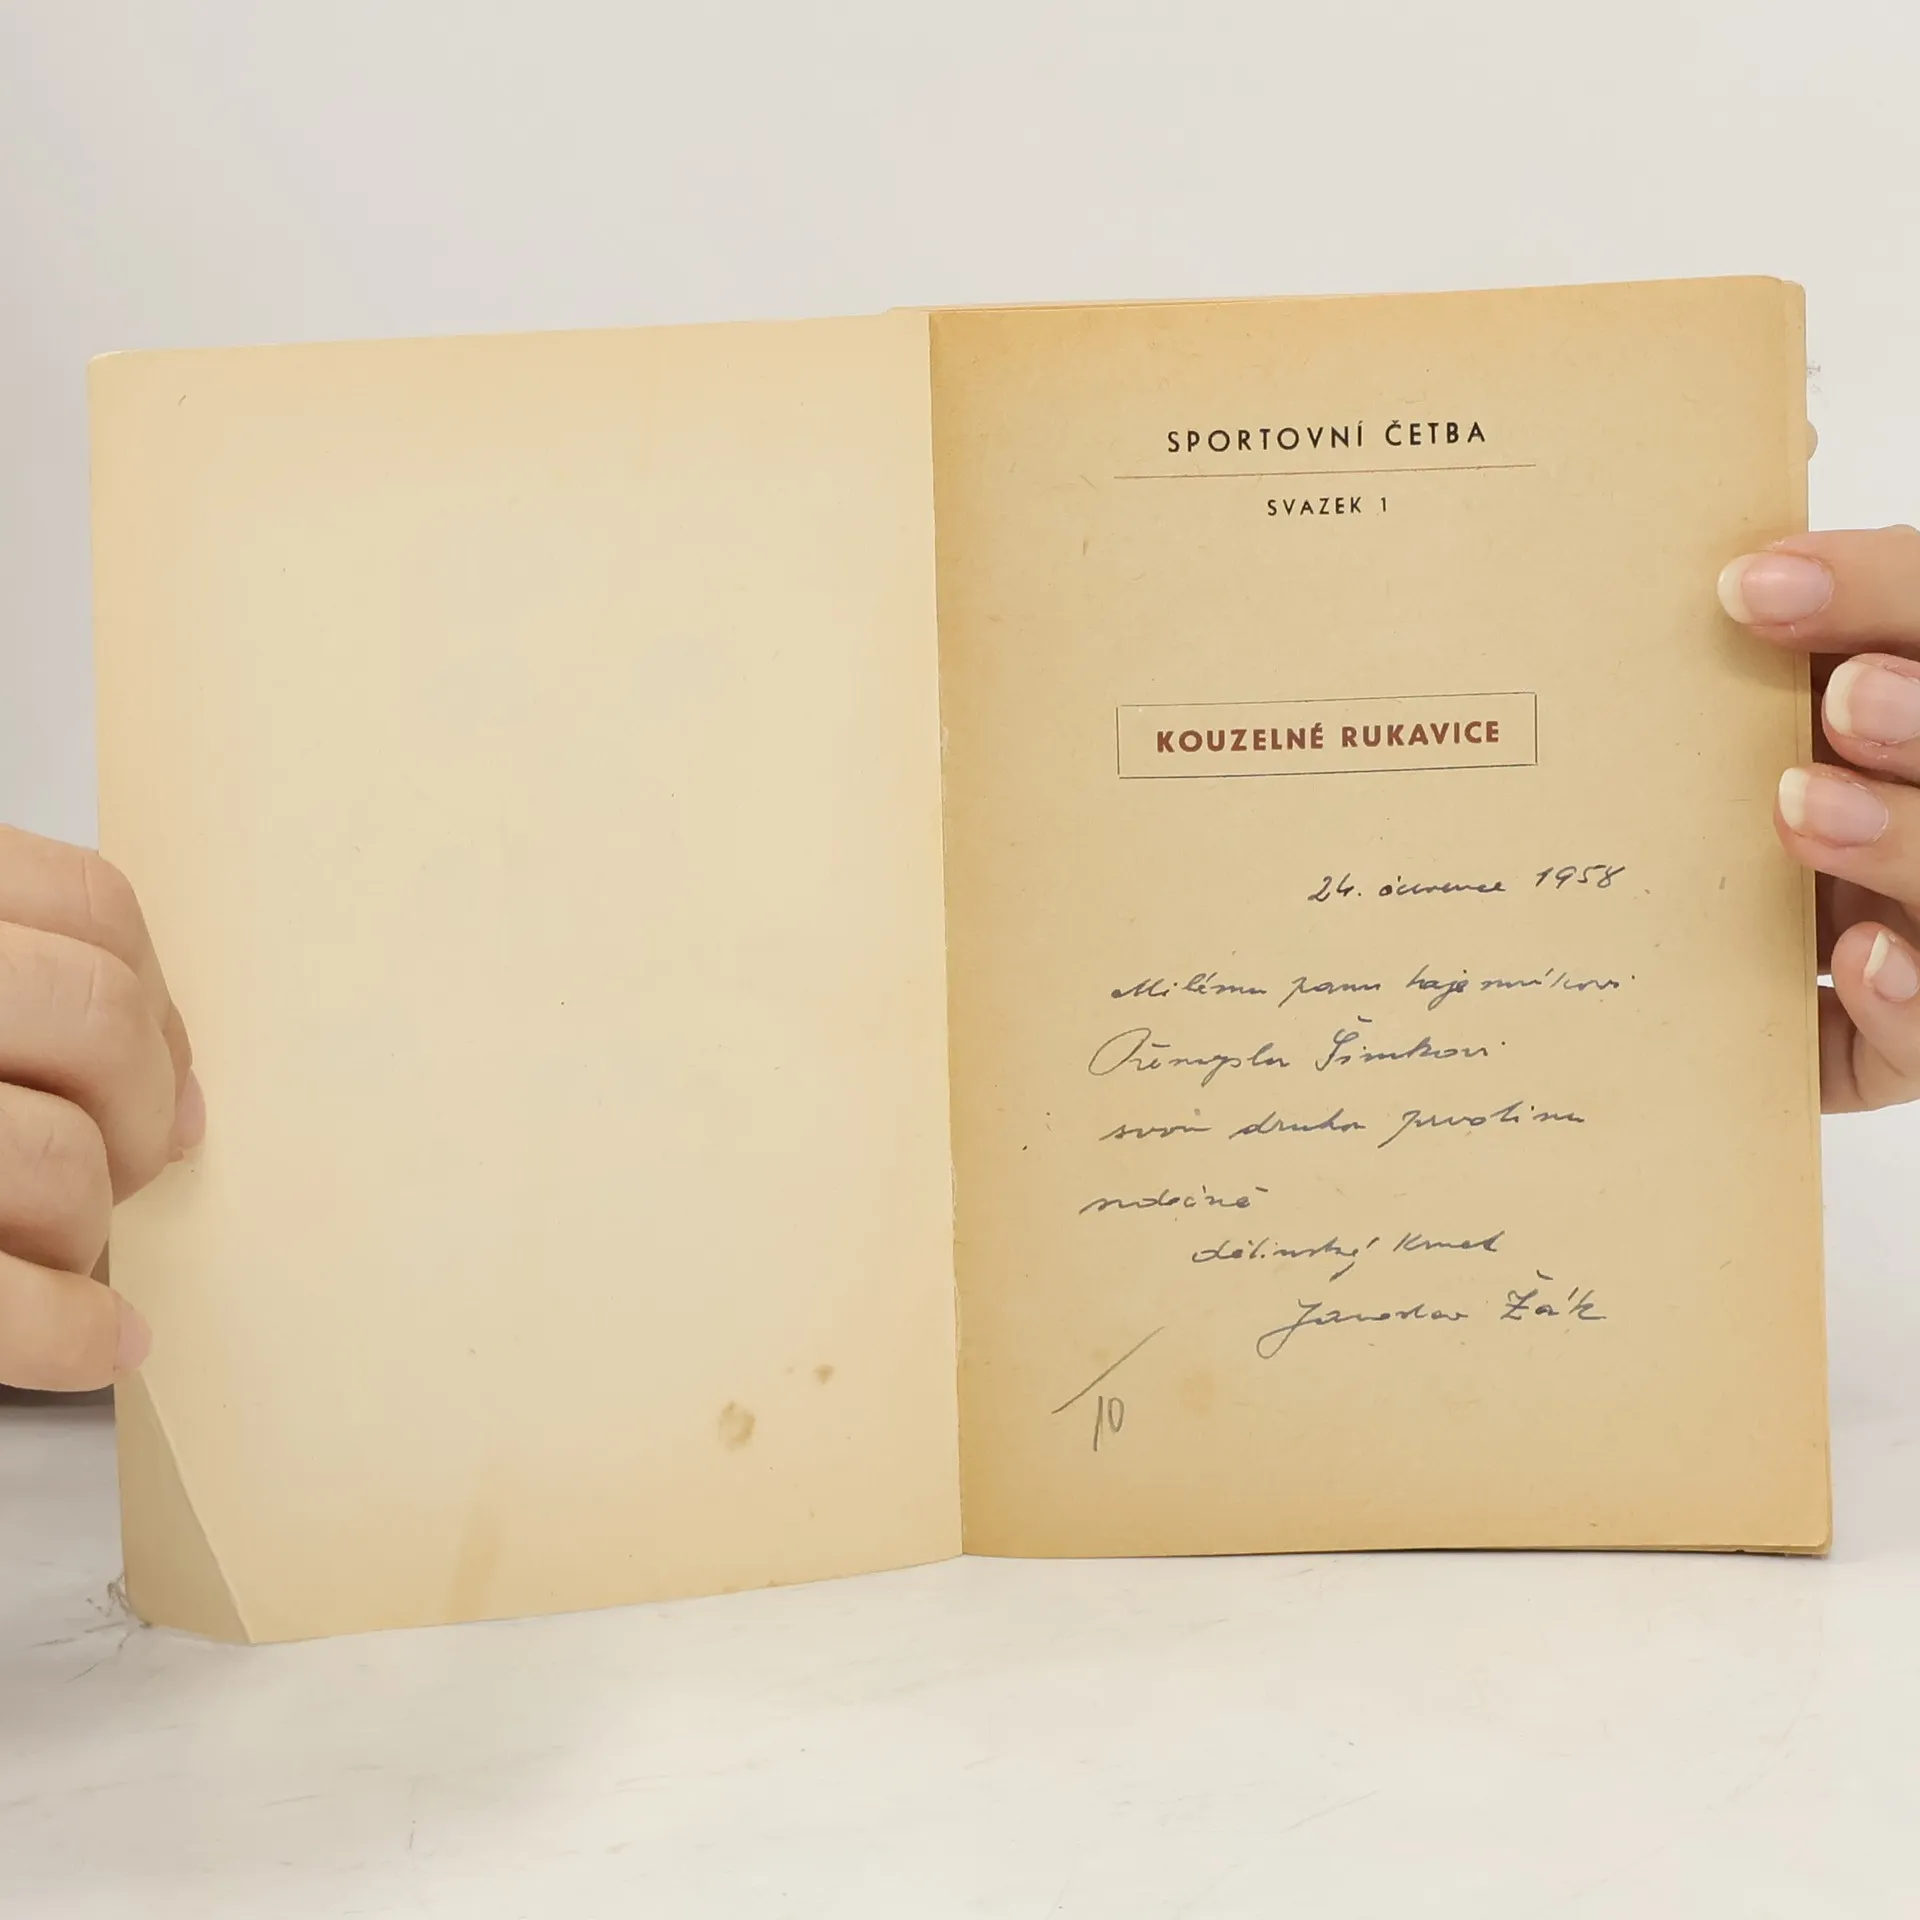 SPORTOVNÍ ČETBA
SVAZEK 1
KOUZELNÉ RUKAVICE
24. července 1958
Milému panu tajemníkovi
Přemyslu Šimkovi
svou druhou prvotinu
srdečně
dělinský Kmet
Jaroslav Žák
/10